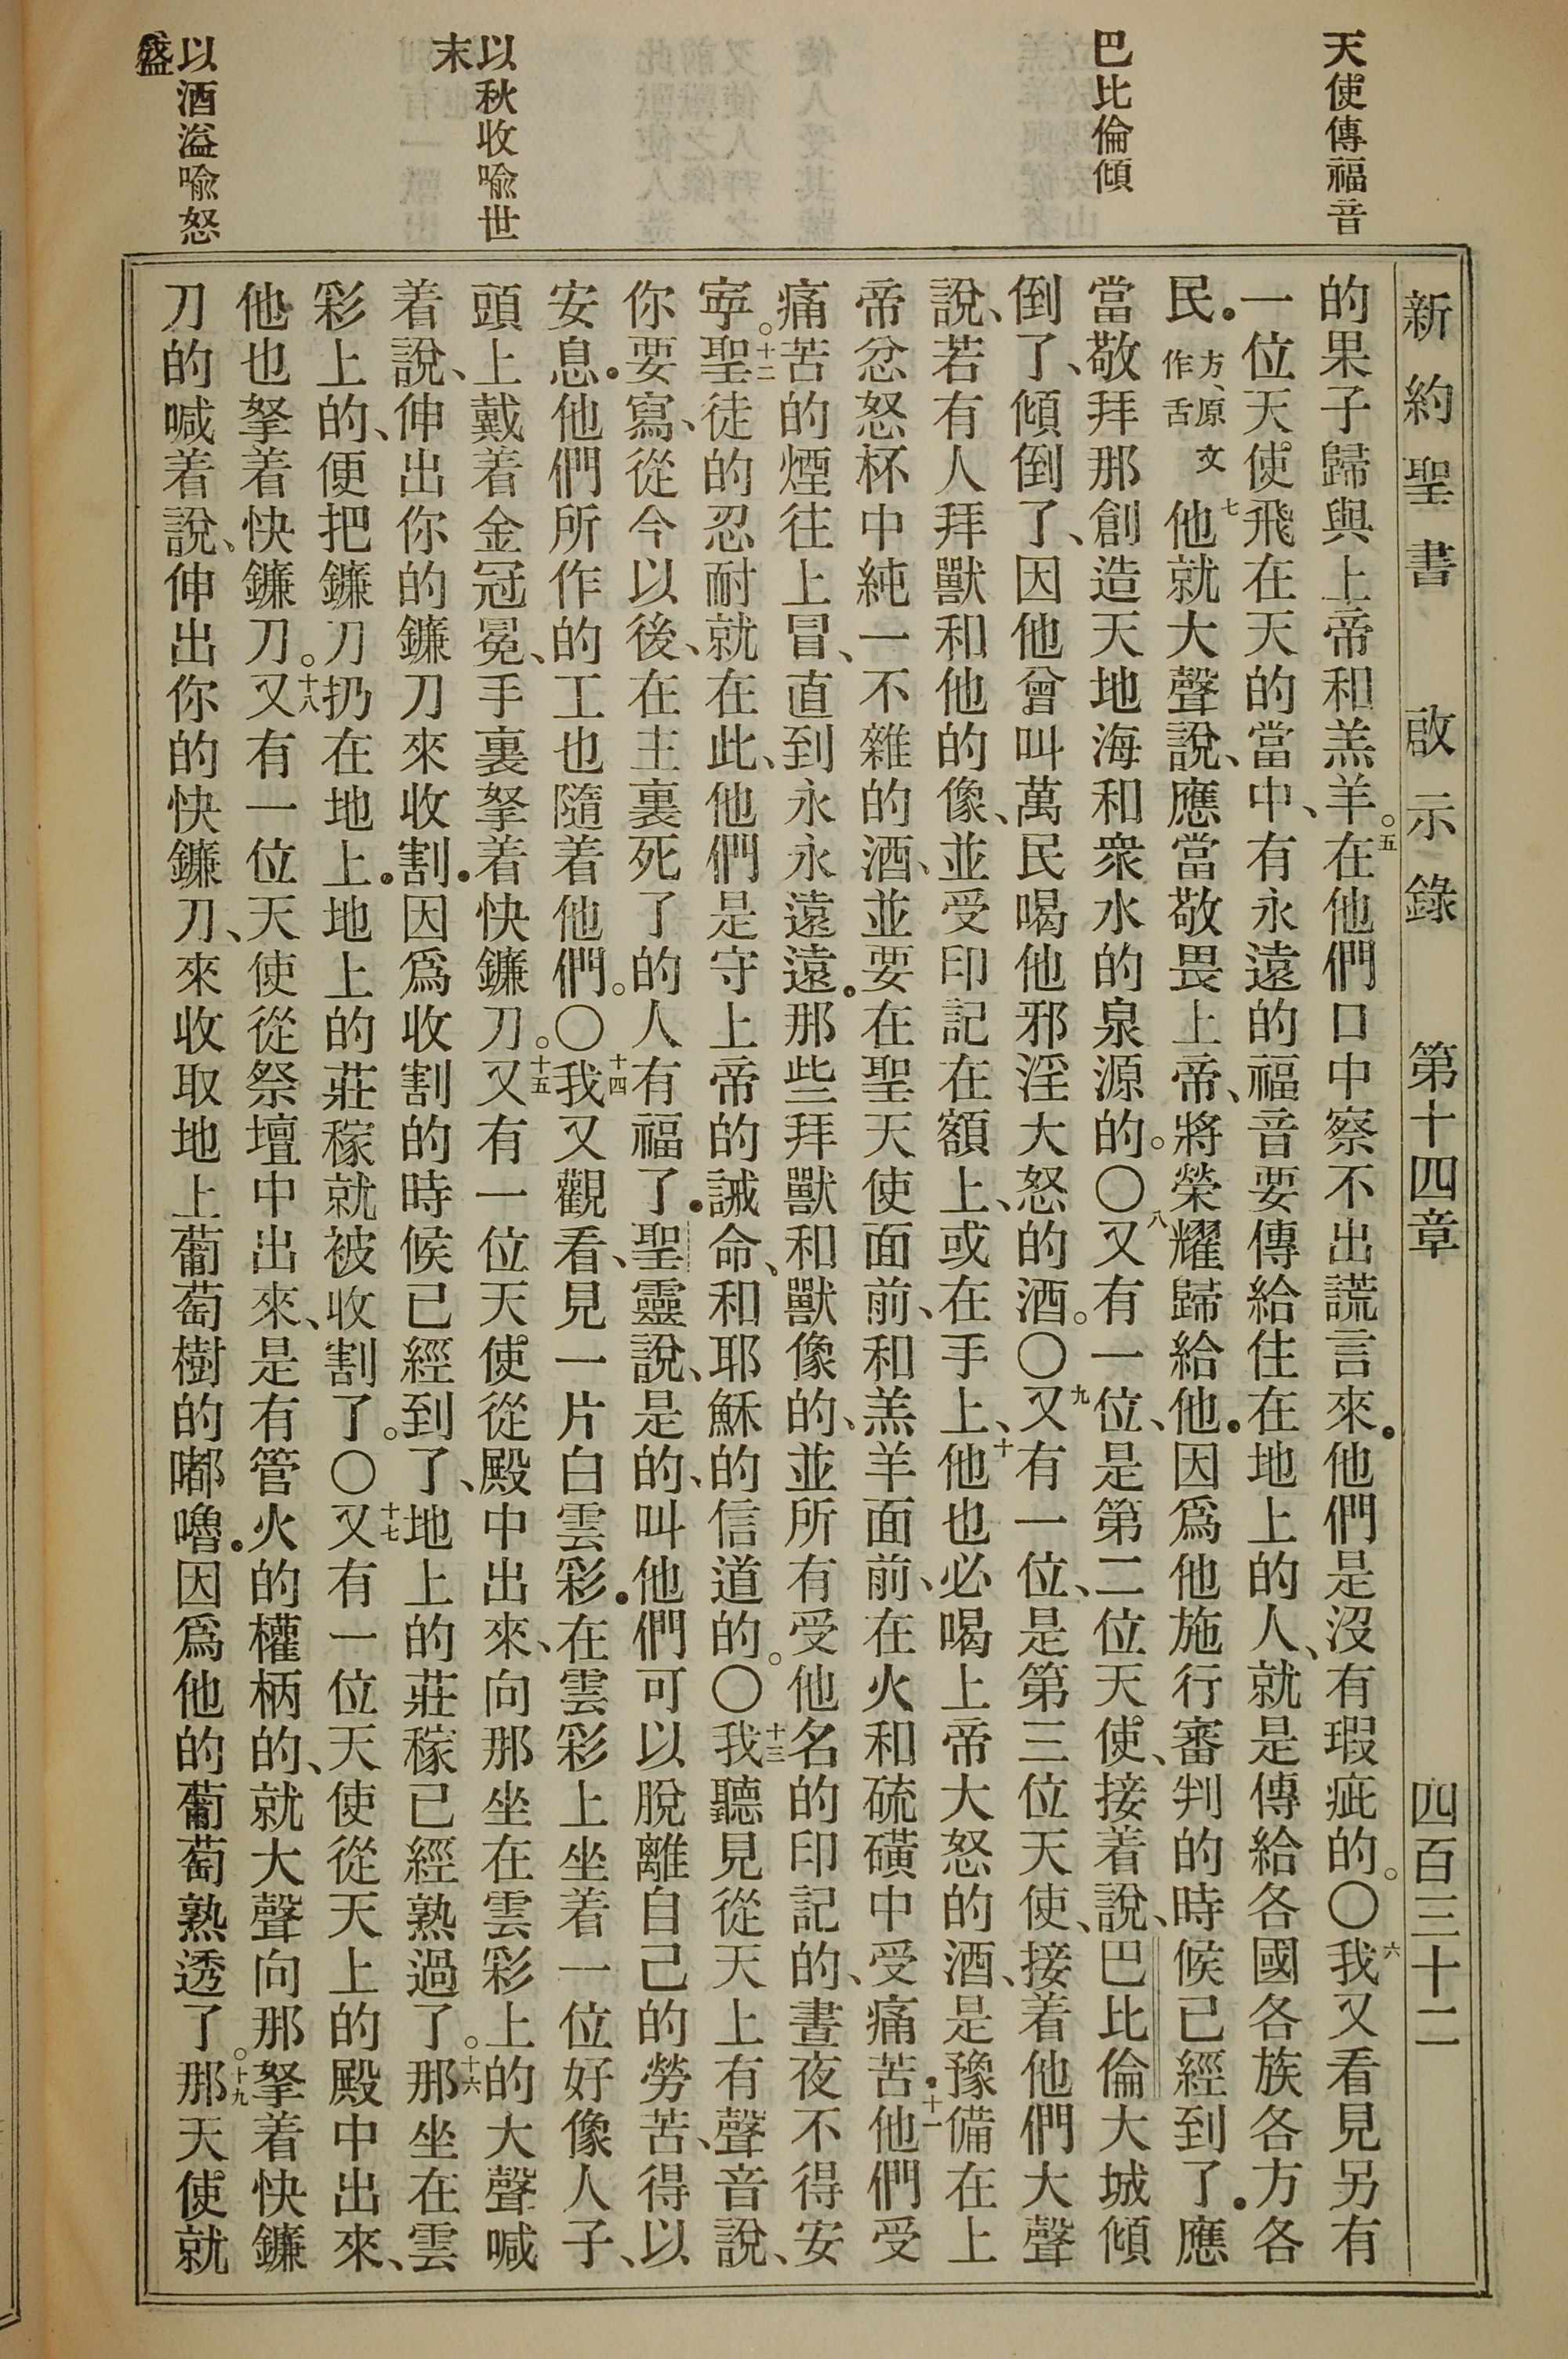 新約聖書 啟示錄 第十四章 四百三十二
天使傳福音
巴比倫傾
以秋收喩世
末
以酒溢喩怒
盛
的果子歸與上帝和羔羊。五在他們口中察不出謊言來．他們是沒有瑕疵的。〇六我又看見另有
一位天使飛在天的當中、有永遠的福音要傳給住在地上的人、就是傳給各國各族各方各
民．方、原文作舌七他就大聲說、應當敬畏上帝、將榮耀歸給他．因爲他施行審判的時候已經到了．應
當敬拜那創造天地海和衆水的泉源的。〇八又有一位、是第二位天使、接着說、巴比倫大城傾
倒了、傾倒了、因他曾叫萬民喝他邪淫大怒的酒。〇九又有一位、是第三位天使、接着他們大聲
說、若有人拜獸和他的像、並受印記在額上、或在手上、十他也必喝上帝大怒的酒、是豫備在上
帝忿怒杯中純一不雜的酒、並要在聖天使面前、和羔羊面前、在火和硫磺中受痛苦．十一他們受
痛苦的煙往上冒、直到永永遠遠．那些拜獸和獸像的、並所有受他名的印記的、晝夜不得安
寧。十二聖徒的忍耐就在此、他們是守上帝的誡命、和耶穌的信道的。〇十三我聽見從天上有聲音說、
你要寫、從今以後、在主裏死了的人有福了．聖靈說、是的、叫他們可以脫離自己的勞苦、得以
安息．他們所作的工也隨着他們。〇十四我又觀看、見一片白雲彩．在雲彩上坐着一位好像人子、
頭上戴着金冠冕、手裏拏着快鐮刀。十五又有一位天使從殿中出來、向那坐在雲彩上的大聲喊
着說、伸出你的鐮刀來收割．因爲收割的時候已經到了、地上的莊稼已經熟過了。十六那坐在雲
彩上的、便把鐮刀扔在地上．地上的莊稼就被收割了。〇十七又有一位天使從天上的殿中出來、
他也拏着快鐮刀。十八又有一位天使從祭壇中出來、是有管火的權柄的、就大聲向那拏着快鐮
刀的喊着說、伸出你的快鐮刀、來收取地上葡萄樹的嘟嚕．因爲他的葡萄熟透了。十九那天使就